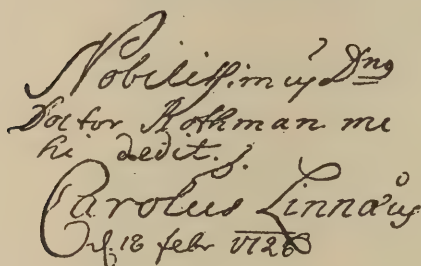 Nobilissimus Dnꝰ
Doctor Rothman mi
hi dedit.
Carolus Linnæus
d. 18 febr 1726